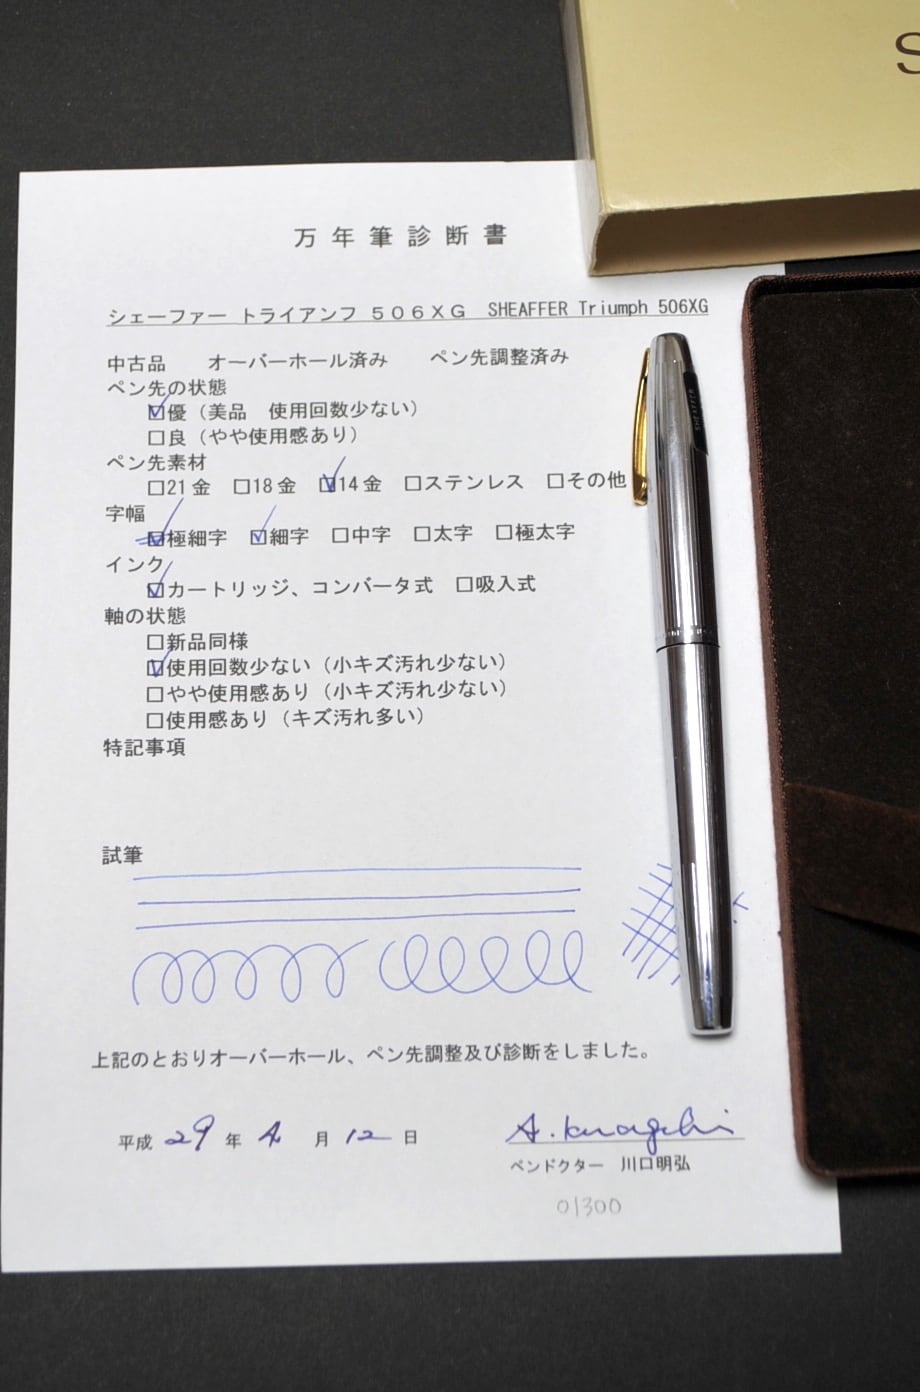 S
万年筆診断書
シェーファー トライアンフ ５０６ＸＧ SHEAFFER Triumph 506XG
中古品 オーバーホール済み ペン先調整済み
ペン先の状態
☑優（美品 使用回数少ない）
□良（やや使用感あり）
ペン先素材
□21金 □18金 ☑14金 □ステンレス □その他
字幅
☑極細字 ☑細字 □中字 □太字 □極太字
インク
☑カートリッジ、コンバータ式 □吸入式
軸の状態
□新品同様
☑使用回数少ない（小キズ汚れ少ない）
□やや使用感あり（小キズ汚れ少ない）
□使用感あり（キズ汚れ多い）
特記事項
試筆
上記のとおりオーバーホール、ペン先調整及び診断をしました。
平成 29 年 4 月 12 日
A. Kawaguchi
ペンドクター 川口明弘
01300
SHEAFFER